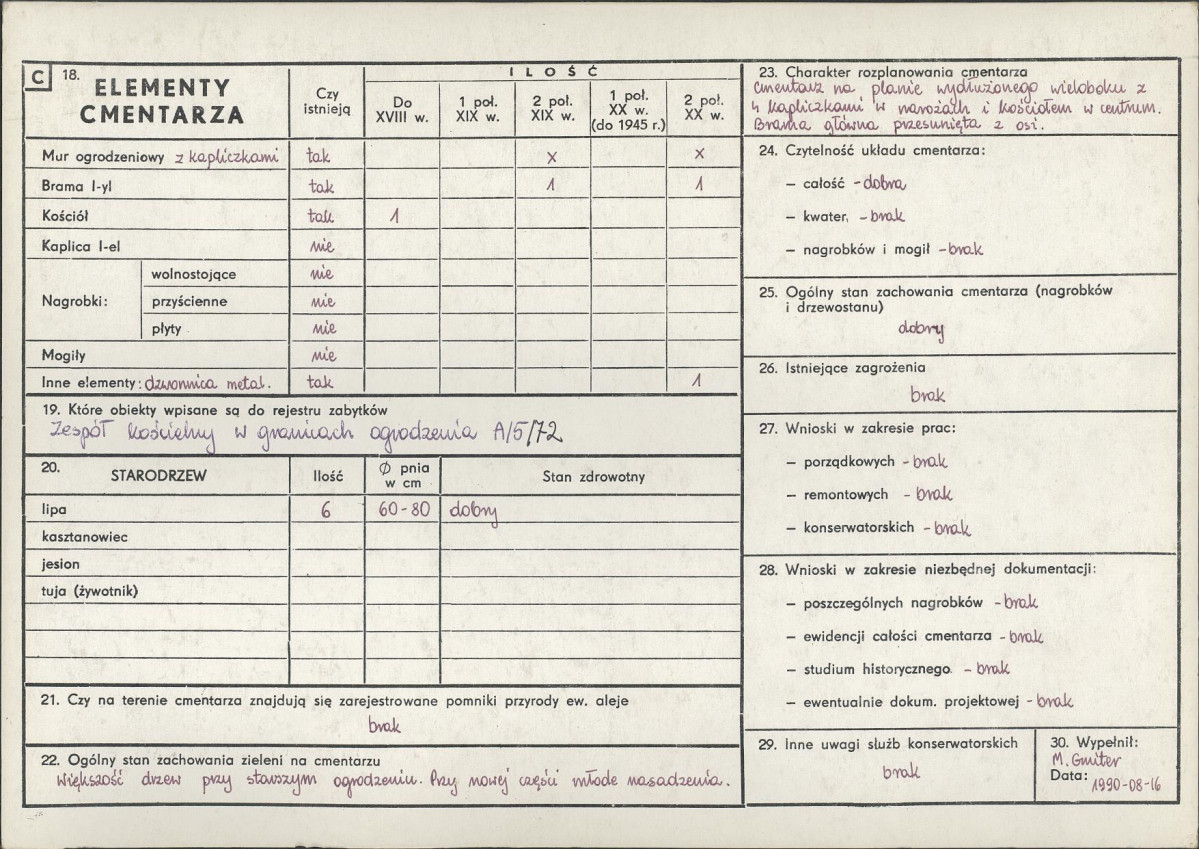 C 18. ELEMENTY CMENTARZA
Czy istnieją
ILOŚĆ
Do XVIII w.
1 poł. XIX w.
2 poł. XIX w.
1 poł. XX w. (do 1945 r.)
2 poł. XX w.
Mur ogrodzeniowy z kapliczkami tak x x
Brama I-yl tak 1 1
Kościół tak 1
Kaplica I-el nie
Nagrobki:
wolnostojące nie
przyścienne nie
płyty nie
Mogiły nie
Inne elementy: dzwonnica metal. tak 1
19. Które obiekty wpisane są do rejestru zabytków
Zespół kościelny w granicach ogrodzenia A/5/72
20. STARODRZEW Ilość Ø pnia w cm Stan zdrowotny
lipa 6 60-80 dobry
kasztanowiec
jesion
tuja (żywotnik)
21. Czy na terenie cmentarza znajdują się zarejestrowane pomniki przyrody ew. aleje
brak
22. Ogólny stan zachowania zieleni na cmentarzu
Większość drzew przy starszym ogrodzeniu. Przy nowej części młode nasadzenia.
23. Charakter rozplanowania cmentarza
Cmentarz na planie wydłużonego wieloboku z
4 kapliczkami w narożach i kościołem w centrum.
Brama główna przesunięta z osi.
24. Czytelność układu cmentarza:
– całość - dobra
– kwater, - brak
– nagrobków i mogił - brak
25. Ogólny stan zachowania cmentarza (nagrobków
i drzewostanu)
dobry
26. Istniejące zagrożenia
brak
27. Wnioski w zakresie prac:
– porządkowych - brak
– remontowych - brak
– konserwatorskich - brak
28. Wnioski w zakresie niezbędnej dokumentacji:
– poszczególnych nagrobków - brak
– ewidencji całości cmentarza - brak
– studium historycznego - brak
– ewentualnie dokum. projektowej - brak
29. Inne uwagi służb konserwatorskich
brak
30. Wypełnił:
M. Gmiter
Data: 1990-08-16